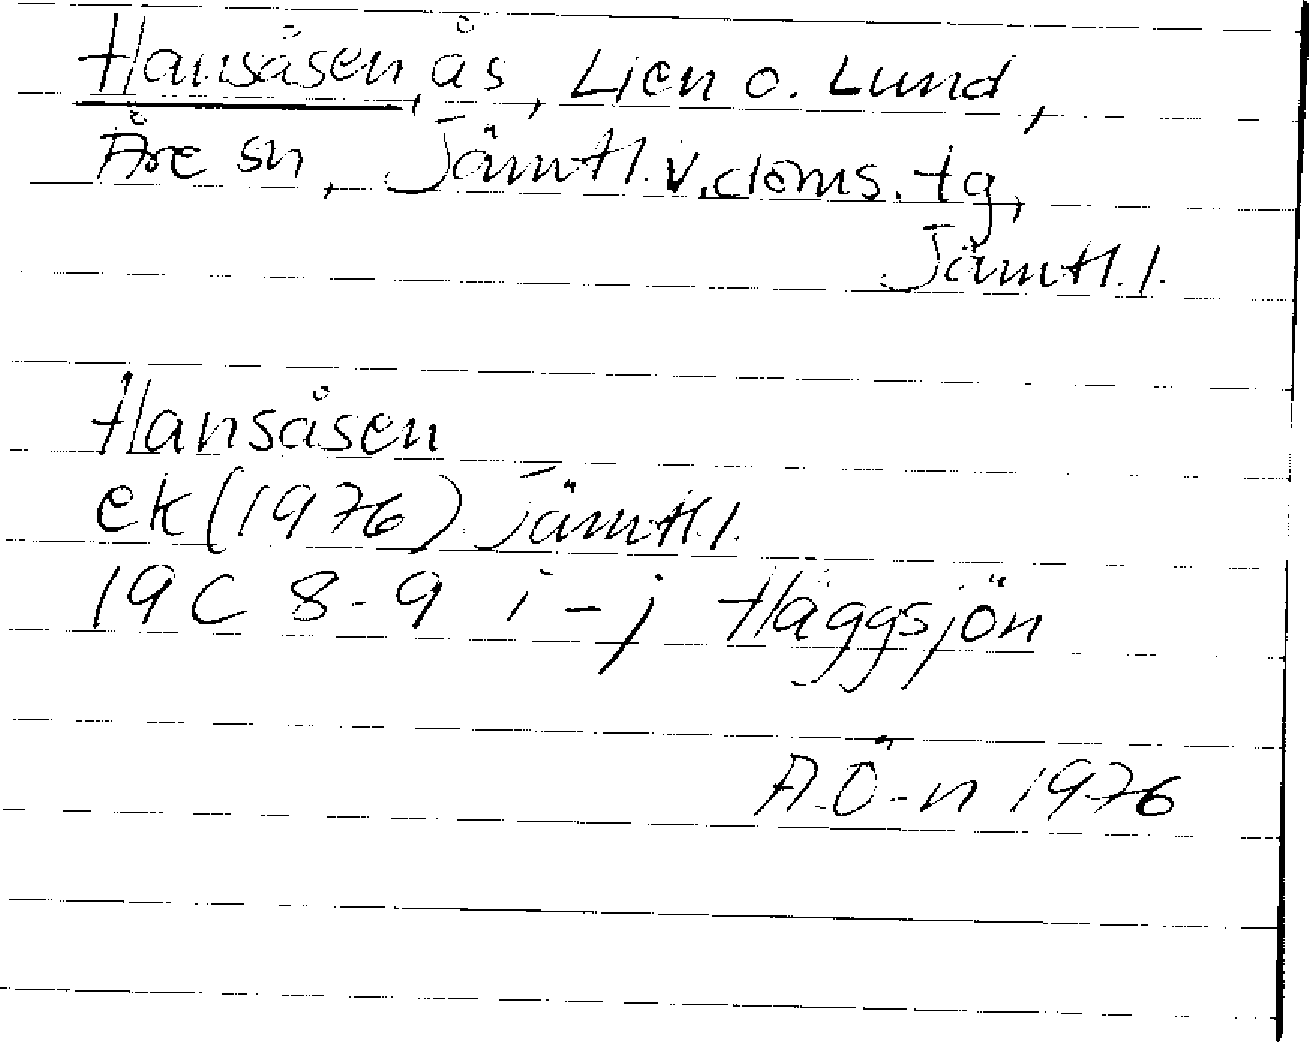 Hansåsen, ås, Lien o. Lund,
Åre sn, Jämtl. v. doms. tg,
Jämtl. l.
Hansåsen
ek (1976) Jämtl. l.
19C 8-9 i-j Häggsjön
A.Ö-n 1976